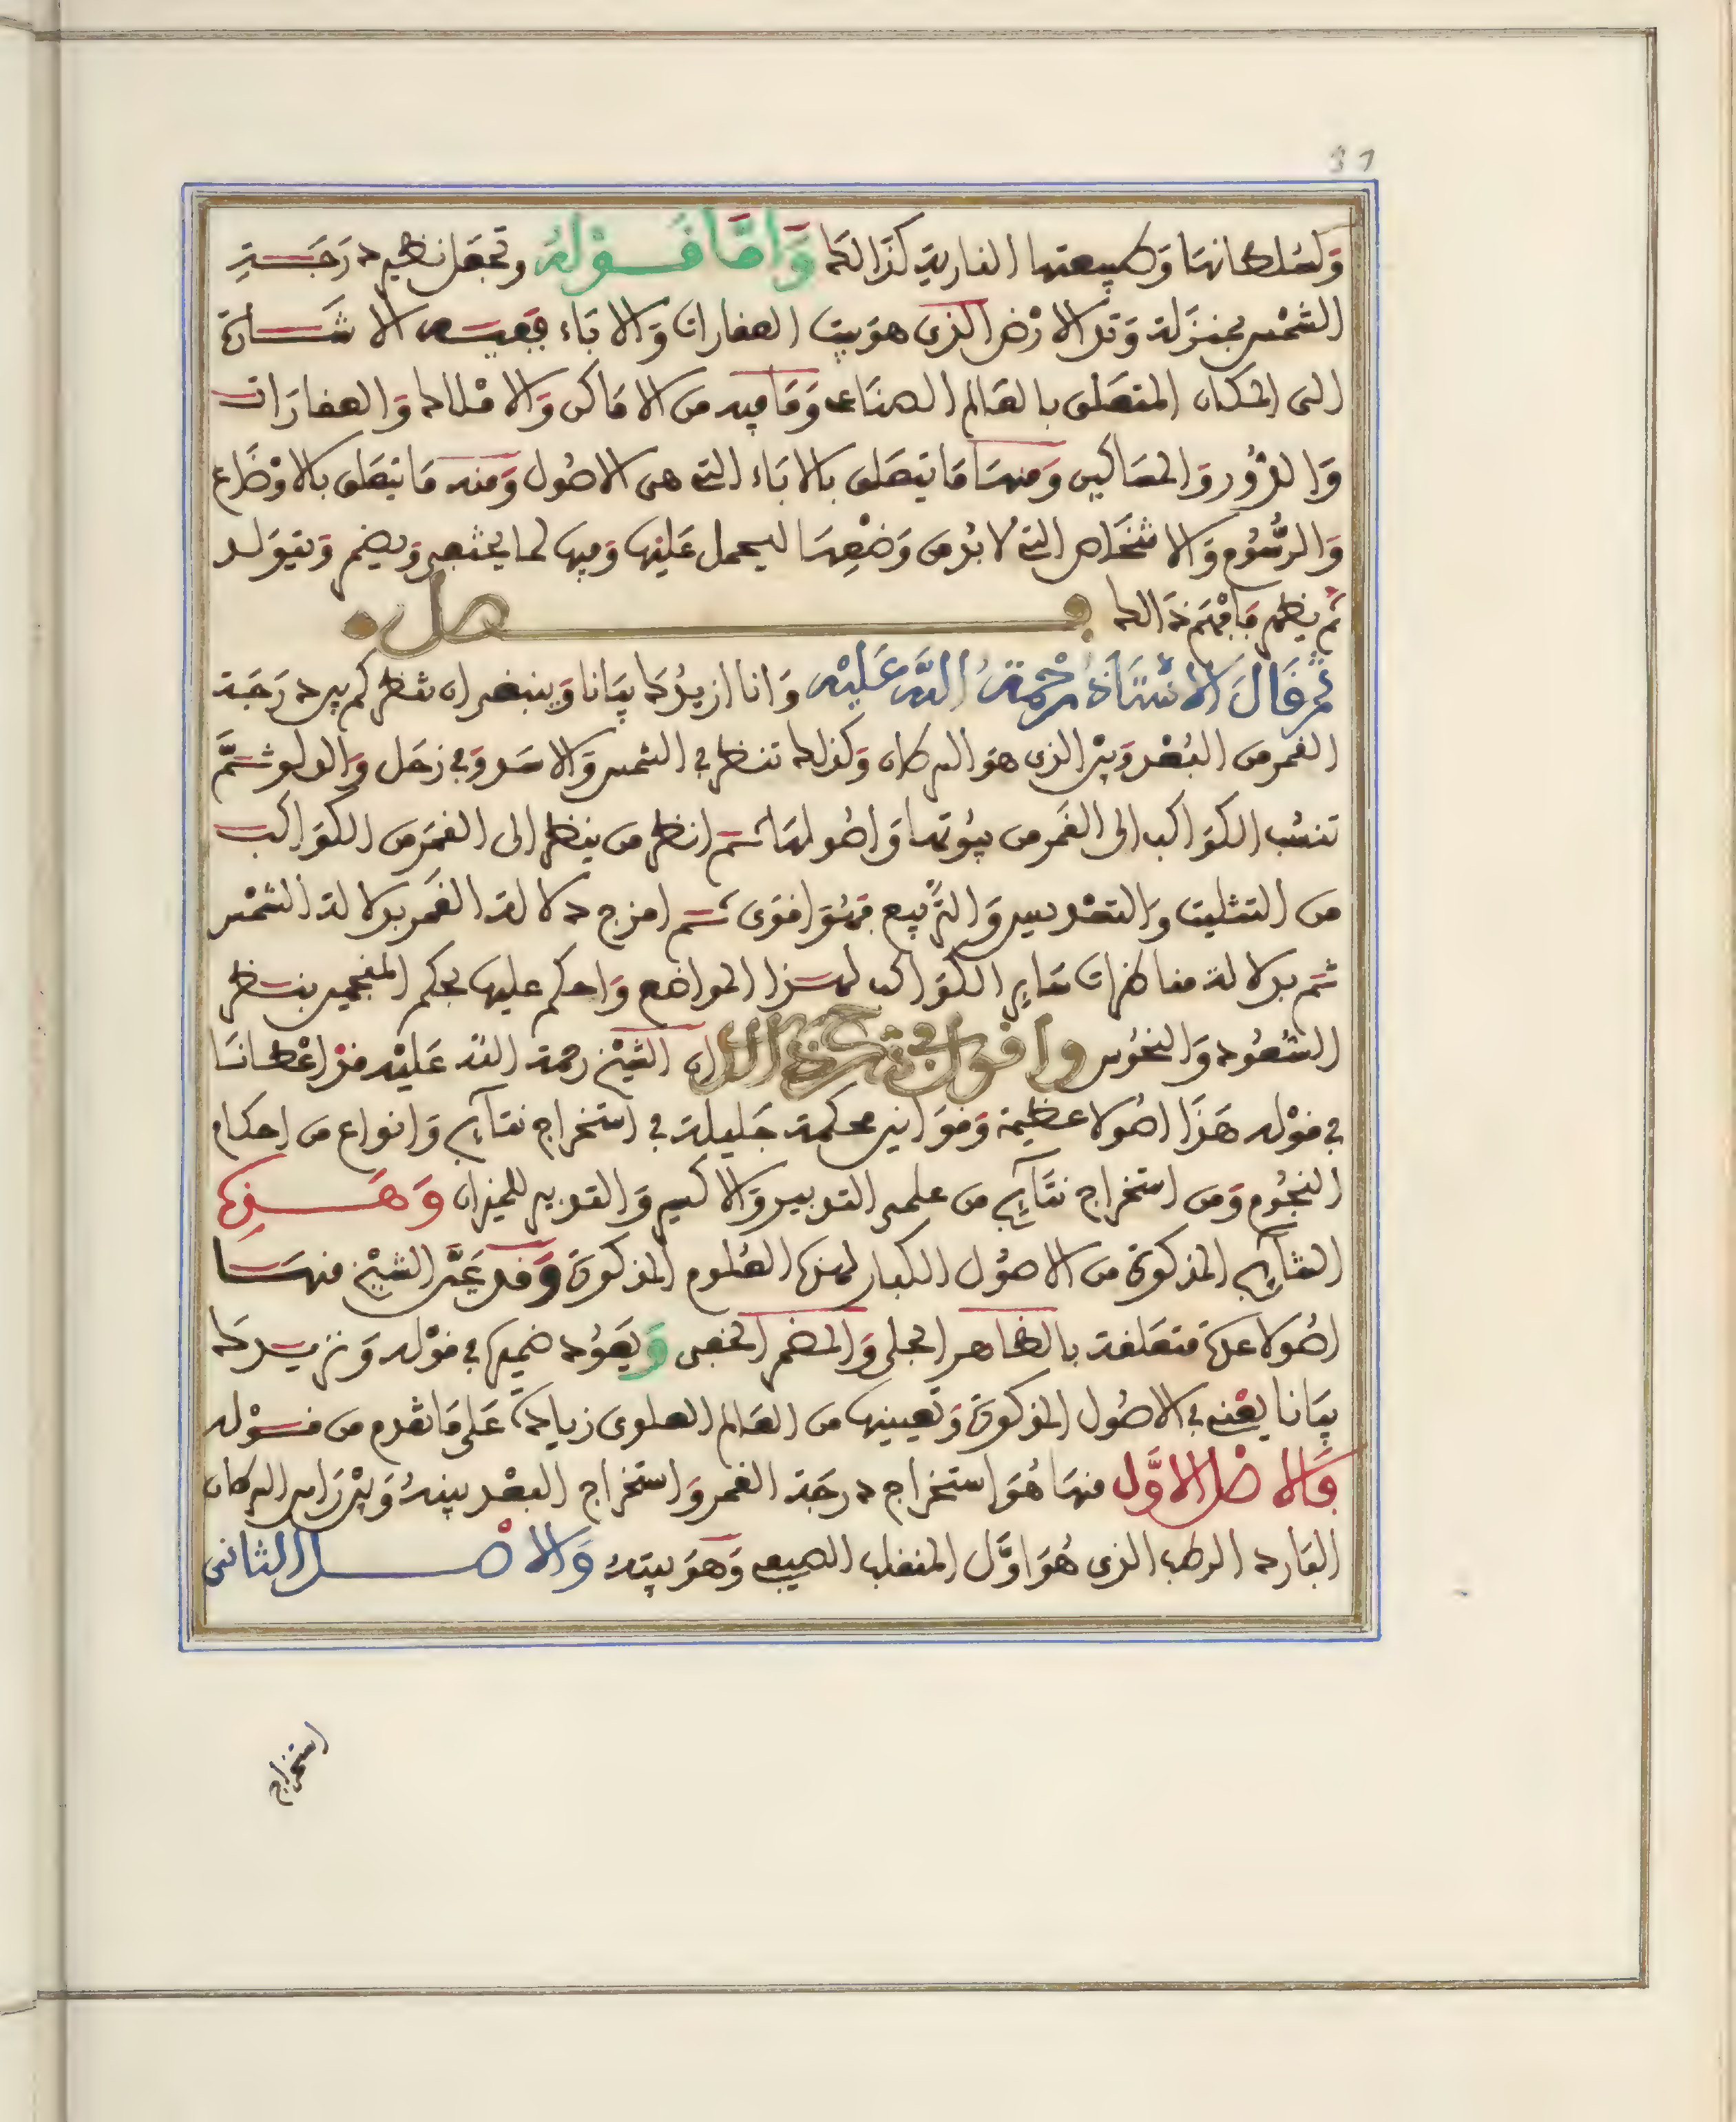 37
وَلسُلطانهَا وَطبيعتها النارية كذالك وَامَّا قَوْلهُ وتجعَل نظير درَجَةِ
الشمْس بمنزلة وَتد الارْض الذى هوَ بيت العفارات وَالابَاء ففيه الاشَارة
الى المكان المتعَلق بالعَالم الصناعى وَمَا فيه من الامَاكن وَالامْلاك وَالعقارَات
وَالدُّور وَالمسَاكين وَمنهَا مَا يتعَلق بالابَاء التى هى الاصُول وَمنه مَا يتعَلق بالاوْضَاع
وَالرسُوم وَالاشخَاص التى لا بُد من وَضْعِهَا ليحمل عَليها وَفيها لما يحتجب وَيضمر وَيتوَلد
ثم يظهر فافهَم ذَالك فصل
ثم قَالَ الاسْتَاذ رَحْمَةُ اللَّه عَليْه وَانا ازيدُك بيَانا وَينبغى ان تنظر كم بين درَجَة
القمر من البُعْد وَبيْن الذى هوَ السرطان وَكذلك تنظر فى الشمس وَالاسَد وَفى زحَل وَالدلو ثمَّ
تنسُب الكوَاكب الى القَمر من بيُوتها وَاصُولهَا ثم انظر من ينظر الى القمَر من الكوَاكب
من التثليث وَالتسْديس وَالترْبيع فهُوَ اقوَى ثم امزج دلالة القَمر بدلالة الشمْس
ثم بدلالة مناظرات سَاير الكوَاكب لهذا المواضع وَاحكم عليها بحكم المنجمين بنظر
السُّعُود وَالنحُوس واقول فى شرح هذا الكلام ان الشيْخ رحمة اللّه عَليْه قد اعْطانَا
فى قوْله هَذَا اصُولا عظيمة وَقوَانين محكمة جَليلة فى استخراج نتَآيج وَانواع من احكام
النجُوم وَمن استخراج نتَآيج من علمى التدبير وَالاكسير وَالتدبير للميزان وَهَذِه
النتآيج المذكورة من الاصُول الكبار لهذه العُلوم المذكورة وَقد عَيَّن الشيْخ منهَا
اصُولا عدة متعَلقة بالظاهر الجلى وَالمضمر الخفى وَيعَوُد ضميرها فى قوْله وَنزيدك
بيَانا يعْنى فى الاصُول المذكورة وَتعيينها من العَالم العلوى زيادة عَلى مَا تقدم من قوْله
فَالاصْل الاوَّل منهَا هُوَ استخراج درجَة القمر وَاستخراج البعْد بينهُ وَبيْن رَاس السرطان
البَارد الرطب الذى هُوَ اوَّل المنقلب الصيفى وَهوَ بيتهُ وَالاصْل الثانى
استخراج